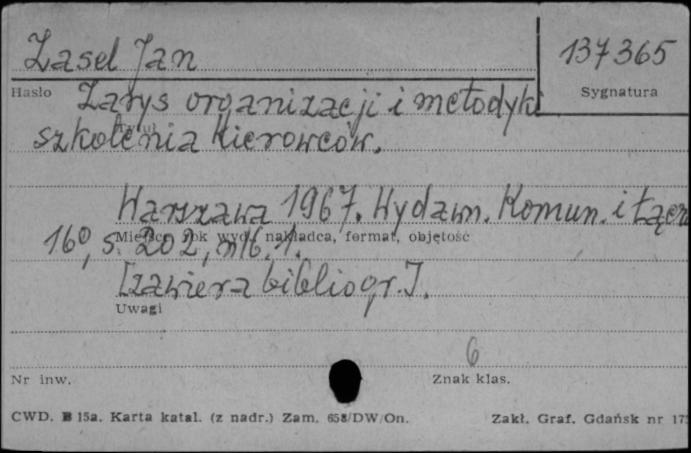 Zasel Jan
137365
Hasło
Sygnatura
Zarys organizacji i metodyki
szkolenia kierowców.
Tytuł
Warszawa 1967. Wydawn. Komun. i Łączn
Miejsce, rok wyd., nakładca, format, objętość
16⁰, s. 202, nlb. 1.
[zawiera bibliogr.].
Uwagi
6
Nr inw.
Znak klas.
CWD. B 15a. Karta katal. (z nadr.) Zam. 658/DW/On.
Zakł. Graf. Gdańsk nr